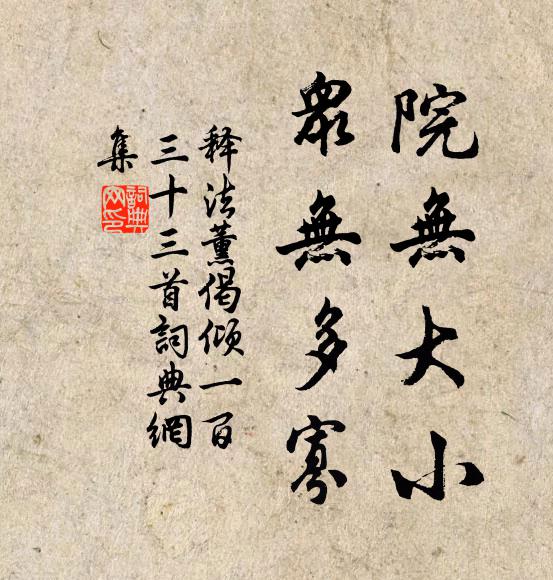 院無大小
眾無多寡
释法薰偈倾一百
三十三首詞典網
集
詞典网印